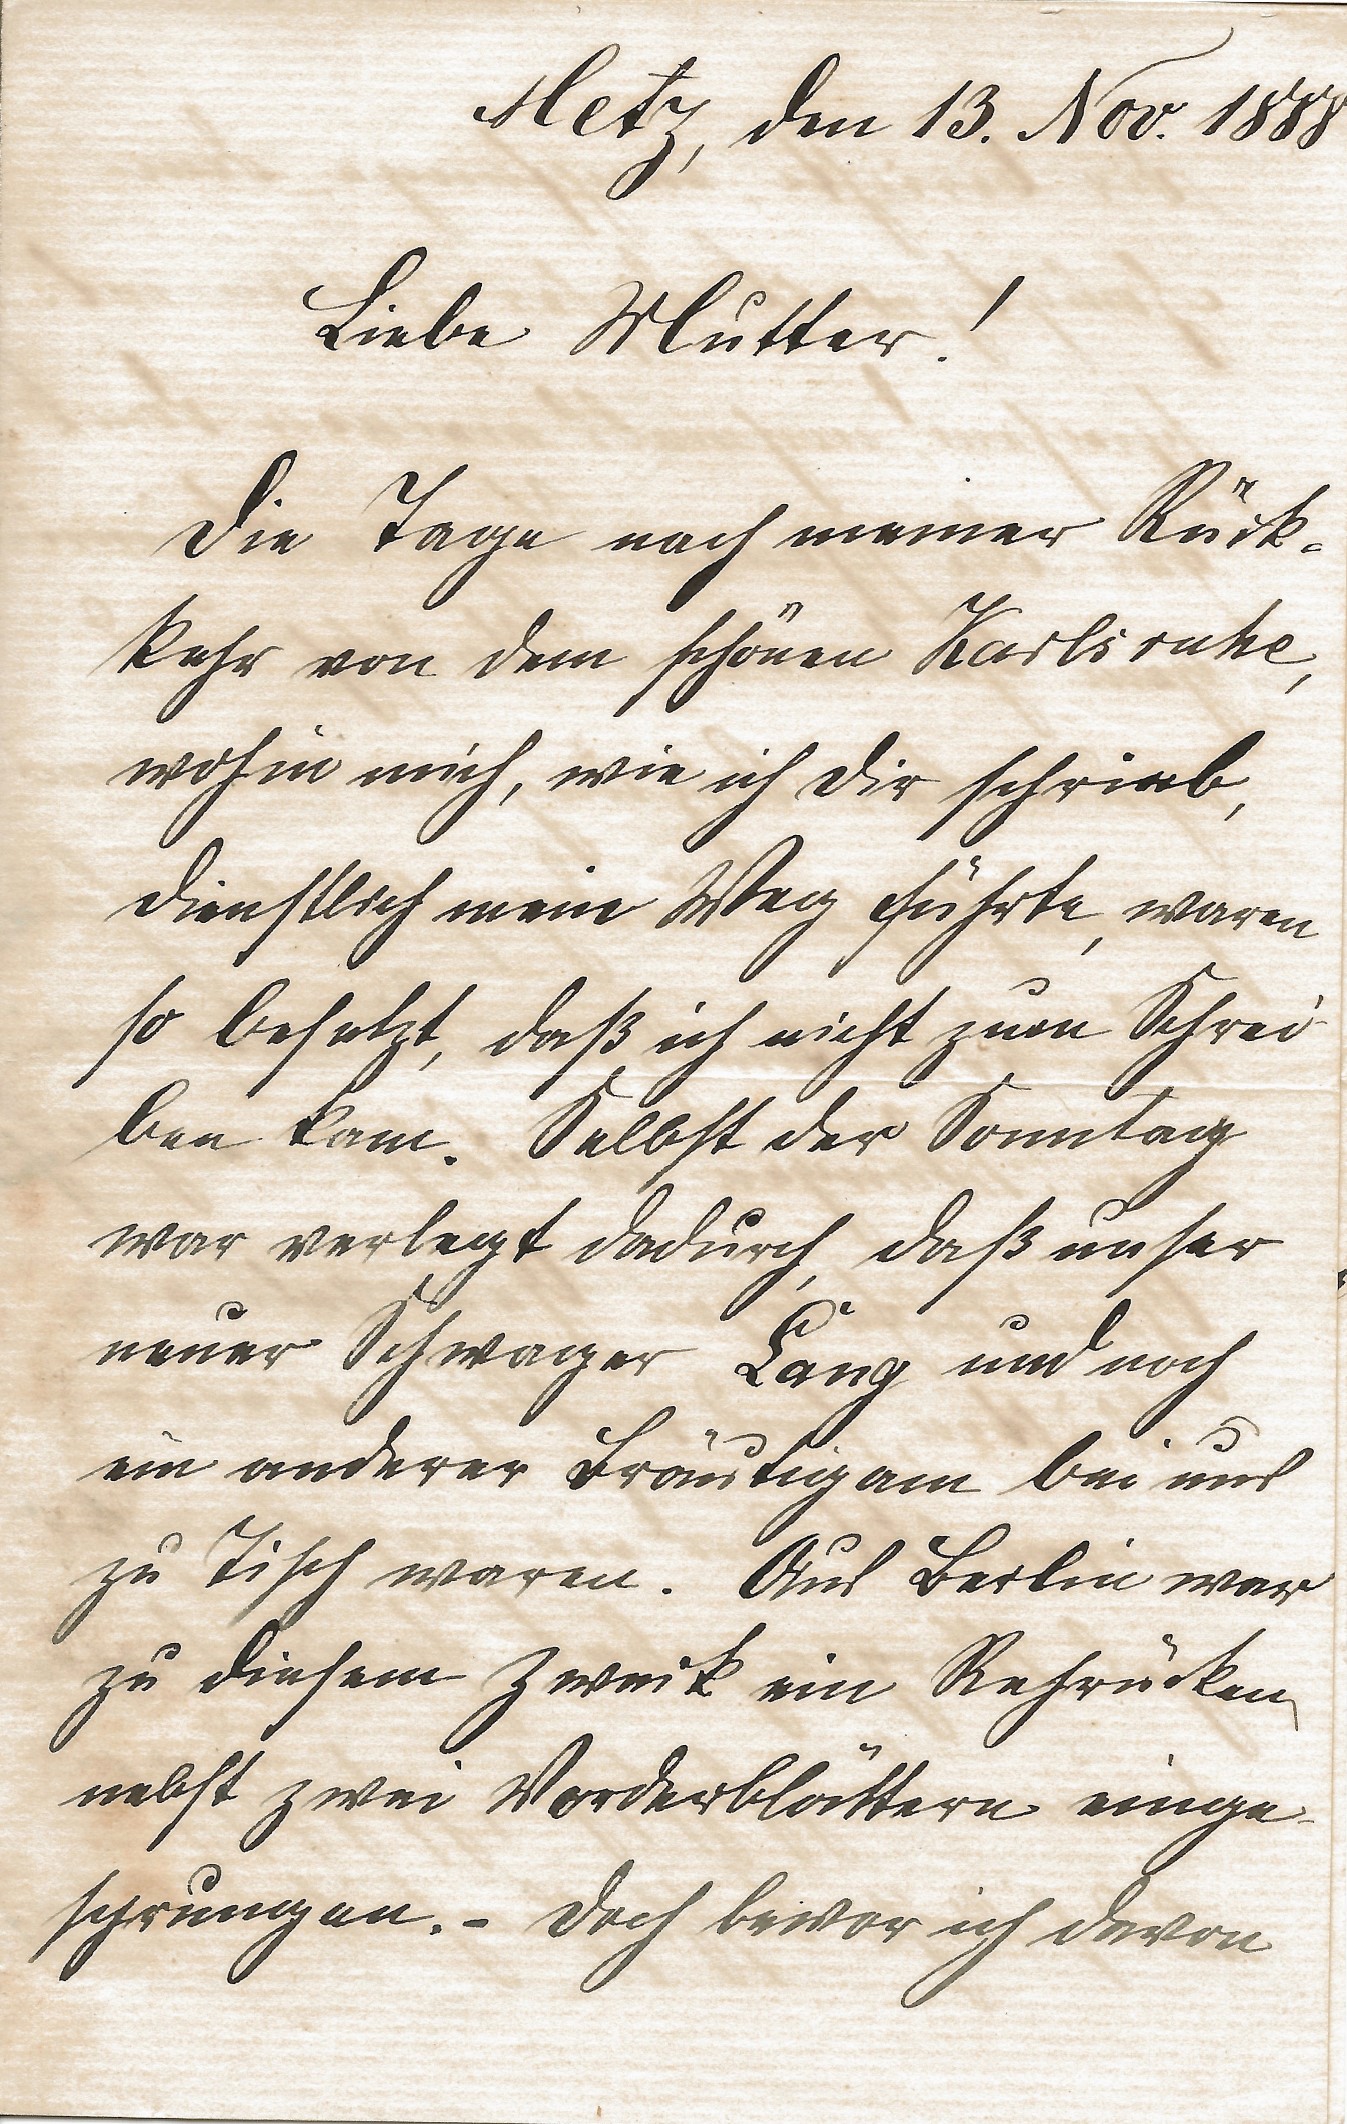 Metz, den 13. Nov. 1888
Liebe Mutter!
Die Tage nach meiner Rück-
kehr von dem schönen Karlsruhe,
wohin mich, wie ich Dir schrieb,
dienstlich mein Weg führte, waren
so besetzt, daß ich nicht zum Schrei-
ben kam. Selbst der Sonntag
war verlegt dadurch, daß unser
neuer Schwager Lang und noch
ein anderer Bräutigam bei uns
zu Tisch waren. Aus Berlin war
zu diesem Zweck ein Rehrücken
nebst zwei Vorderblättern einge-
sprungen. - Doch bevor ich davon